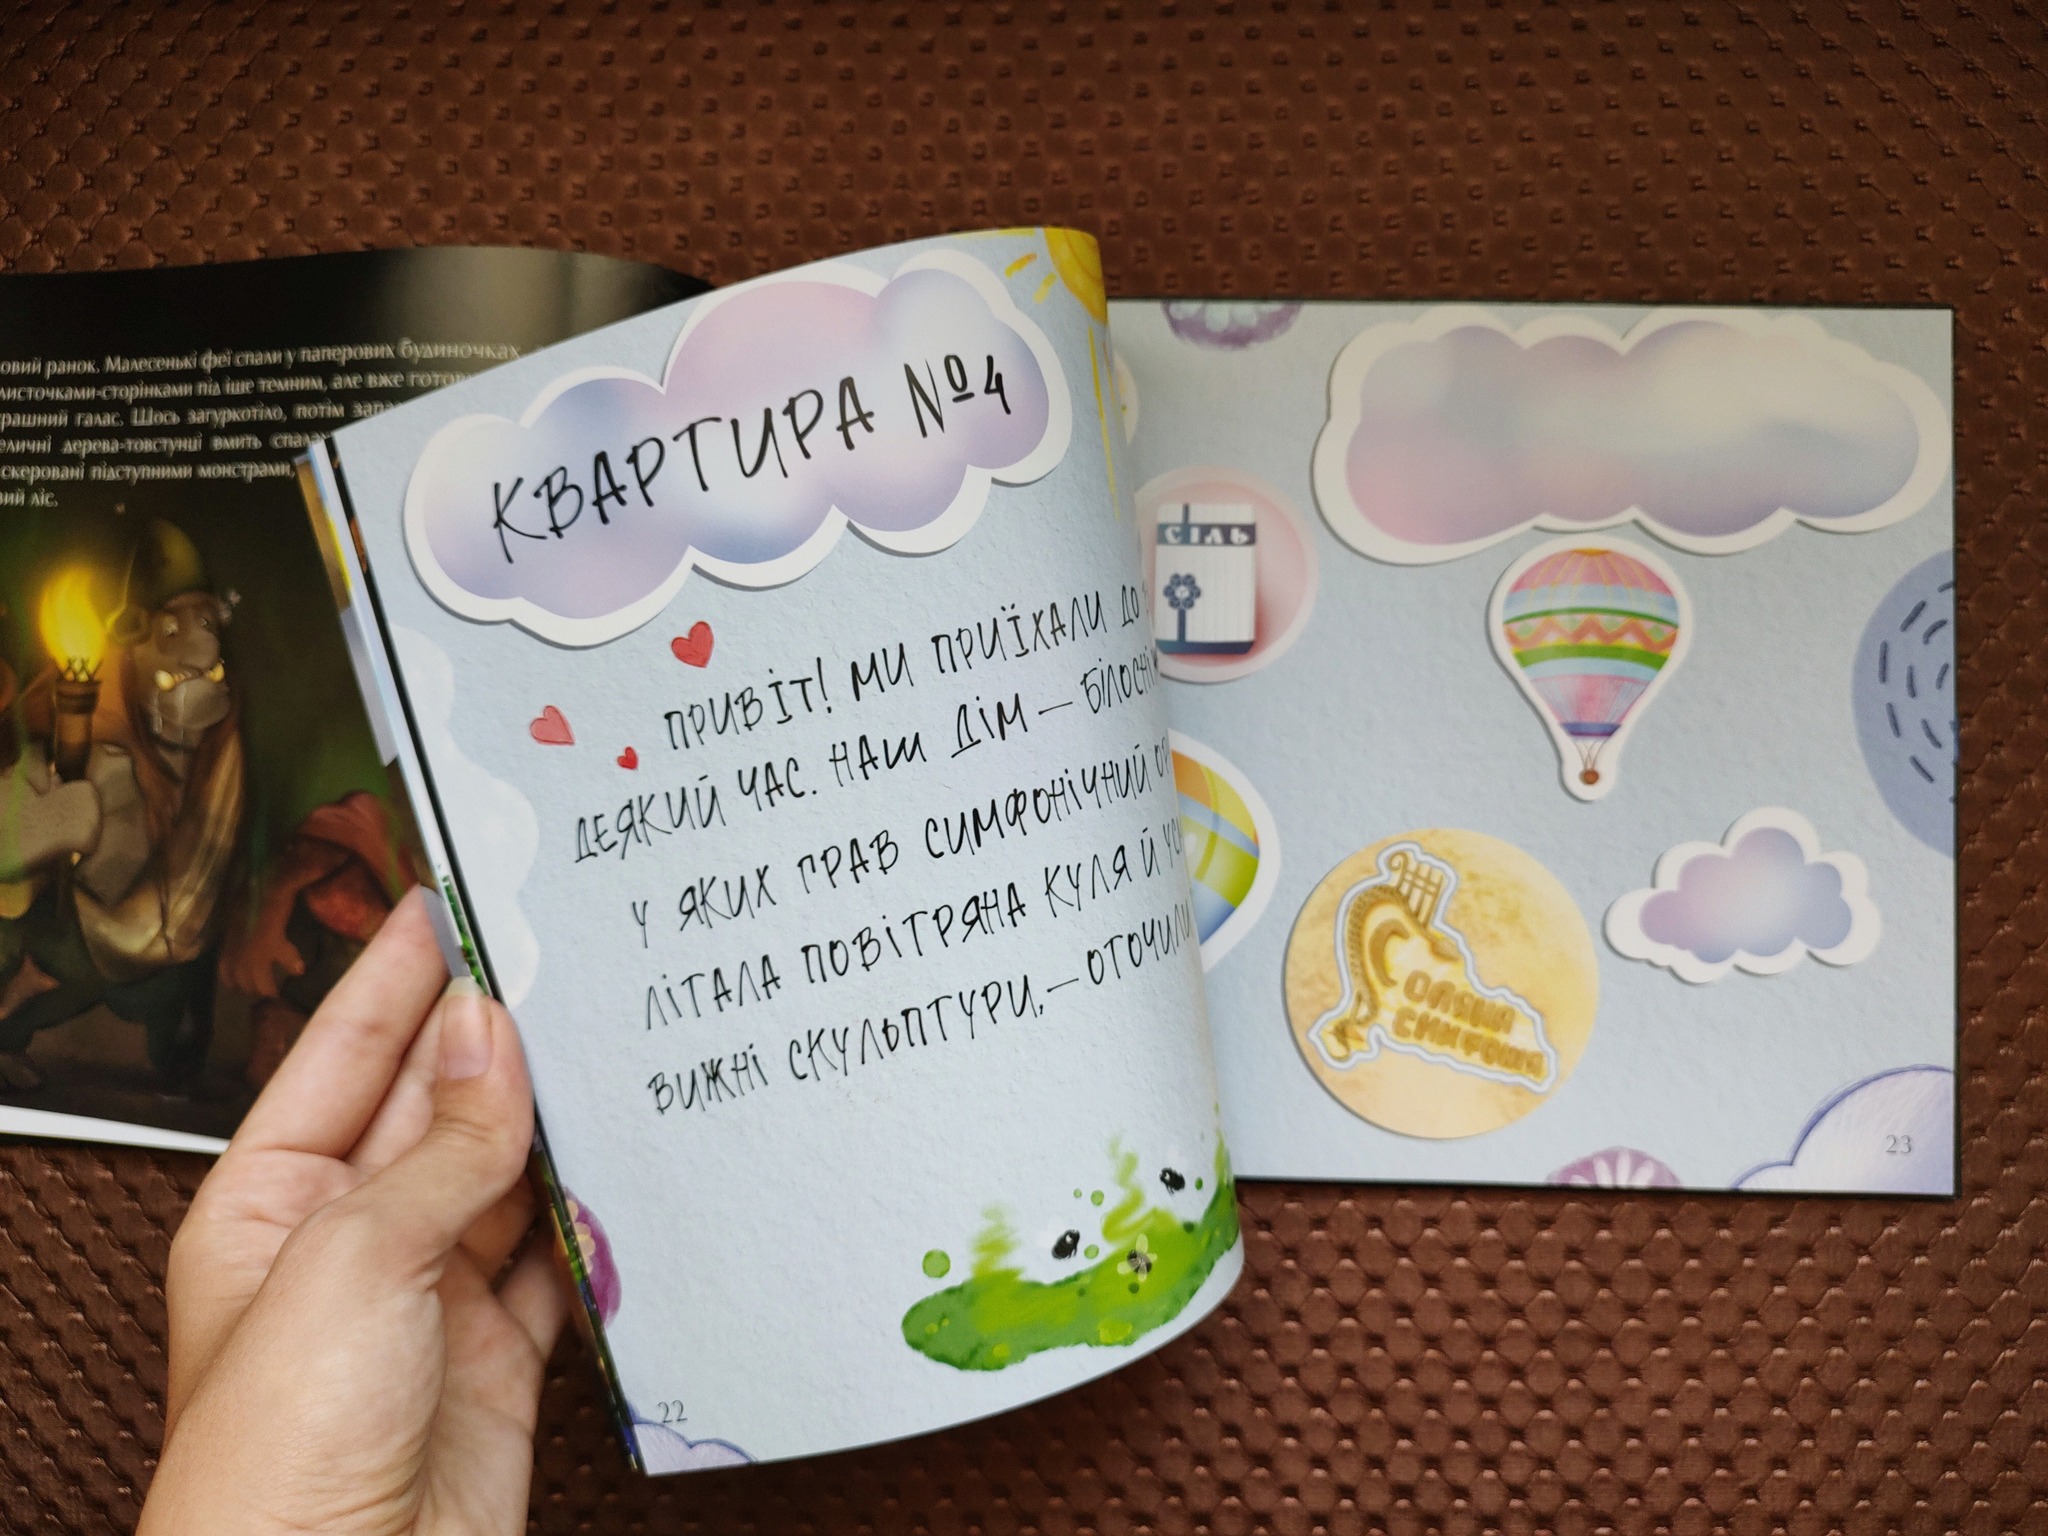 овий ранок. Малесенькі феї спали у паперових будиночках
листочками-сторінками під іще темним, але вже
галас. Шось загуркотіло, потім
дерева-товстунці вмить
скеровані підступними монстрами,
ліс.
КВАРТИРА №4
ПРИВІТ! МИ ПРИЇХАЛИ ДО
ДЕЯКИЙ ЧАС. НАШ ДІМ —
У ЯКИХ ГРАВ СИМФОНІЧНИЙ
ЛІТАЛА ПОВІТРЯНА КУЛЯ Й
ВИЖНІ СКУЛЬПТУРИ, — ОТОЧИЛИ
22
СІЛЬ
СОЛЯНА
СИМФОНІЯ
23